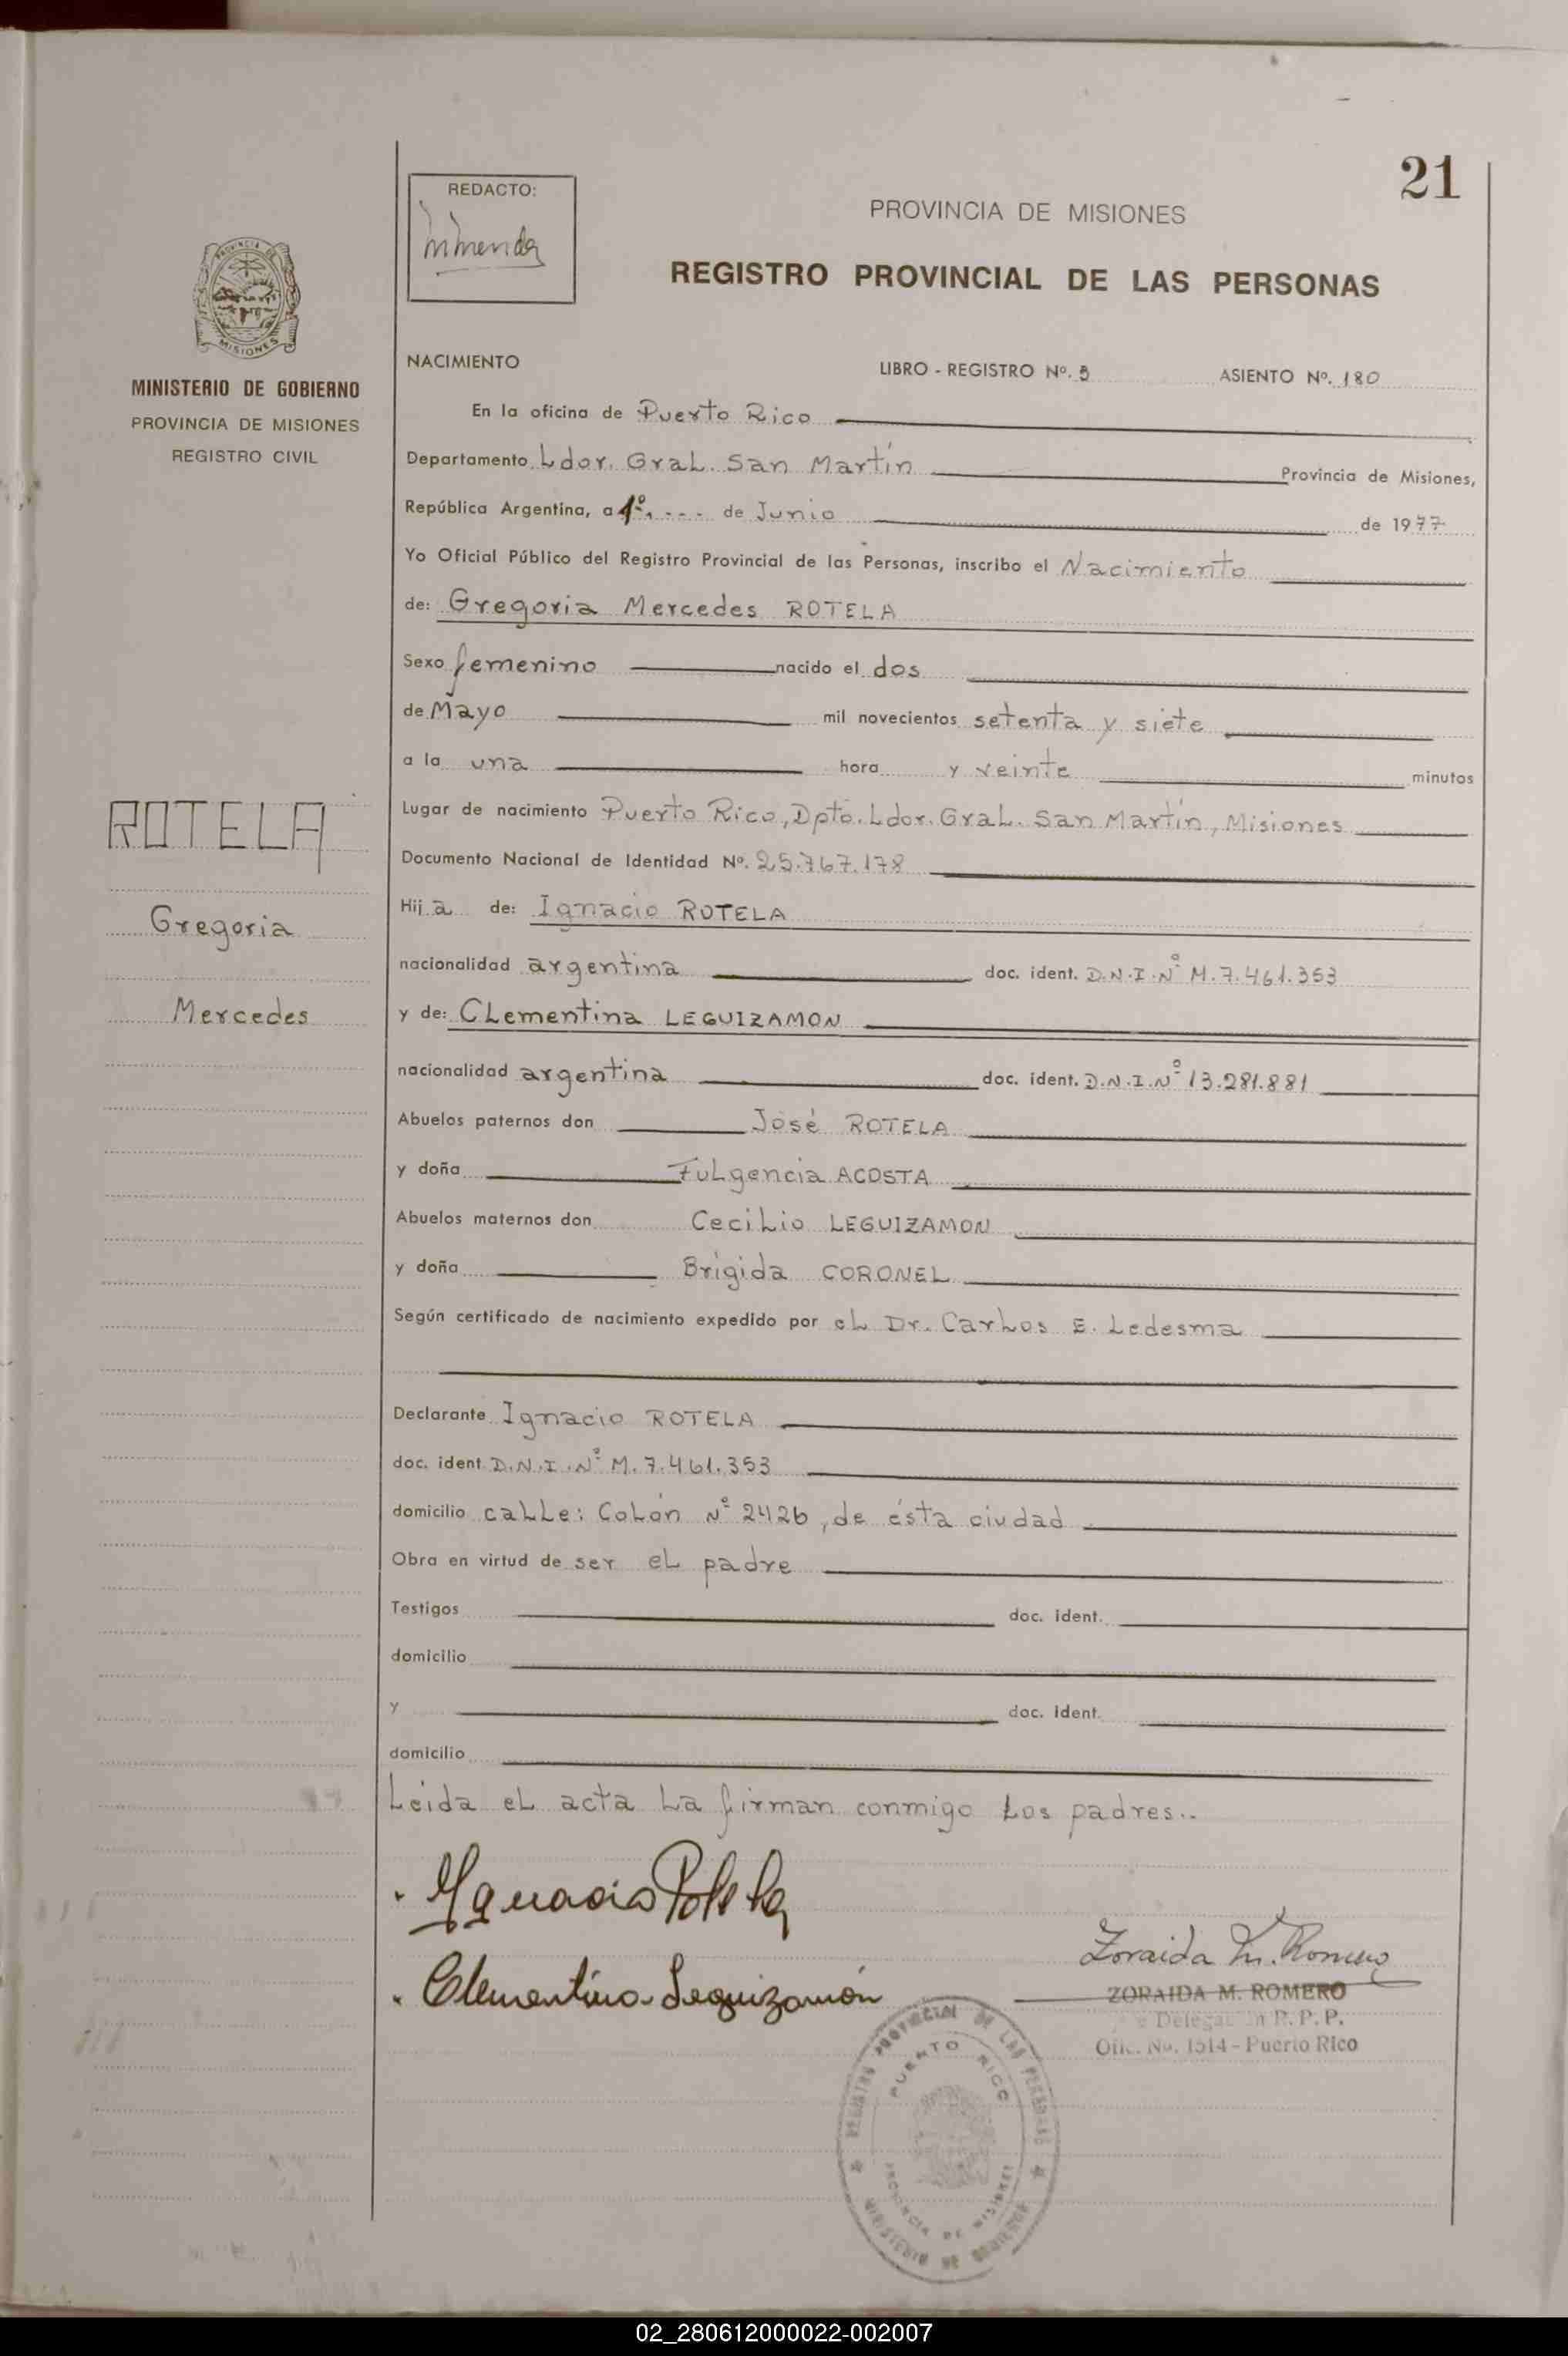 21
REDACTO:
PROVINCIA DE MISIONES
REGISTRO PROVINCIAL DE LAS PERSONAS
MISIONES
MINISTERIO DE GOBIERNO
PROVINCIA DE MISIONES
REGISTRO CIVIL
ROTELA
Gregoria
Mercedes
NACIMIENTO LIBRO - REGISTRO Nº. 5 ASIENTO Nº. 180
En la oficina de Puerto Rico
Departamento Ldor. Gral. San Martín Provincia de Misiones,
República Argentina, a 1º. de Junio de 1977
Yo Oficial Público del Registro Provincial de las Personas, inscribo el Nacimiento
de: Gregoria Mercedes ROTELA
Sexo femenino nacido el dos
de Mayo mil novecientos setenta y siete
a la una hora y veinte minutos
Lugar de nacimiento Puerto Rico, Dpto. Ldor. Gral. San Martín, Misiones
Documento Nacional de Identidad Nº. 25.767.178
Hija de: Ignacio ROTELA
nacionalidad argentina doc. ident. D.N.I. Nº M. 7.461.353
y de: Clementina LEGUIZAMON
nacionalidad argentina doc. ident. D.N.I. Nº 13.281.881
Abuelos paternos don José ROTELA
y doña Fulgencia ACOSTA
Abuelos maternos don Cecilio LEGUIZAMON
y doña Brígida CORONEL
Según certificado de nacimiento expedido por el Dr. Carlos E. Ledesma
Declarante Ignacio ROTELA
doc. ident. D.N.I. Nº M. 7.461.353
domicilio calle: Colón Nº 2426, de ésta ciudad
Obra en virtud de ser el padre
Testigos doc. ident.
domicilio
y doc. ident.
domicilio
Leída el acta la firman conmigo los padres..
Ygnacio Rotela
Clementina Leguizamón
Zoraida M. Romero
ZORAIDA M. ROMERO
R. P. P.
Ofic. No. 1514 - Puerto Rico
REGISTRO PROVINCIAL DE LAS PERSONAS
PUERTO RICO
PROVINCIA DE MISIONES
MINISTERIO DE GOBIERNO
02_280612000022-002007